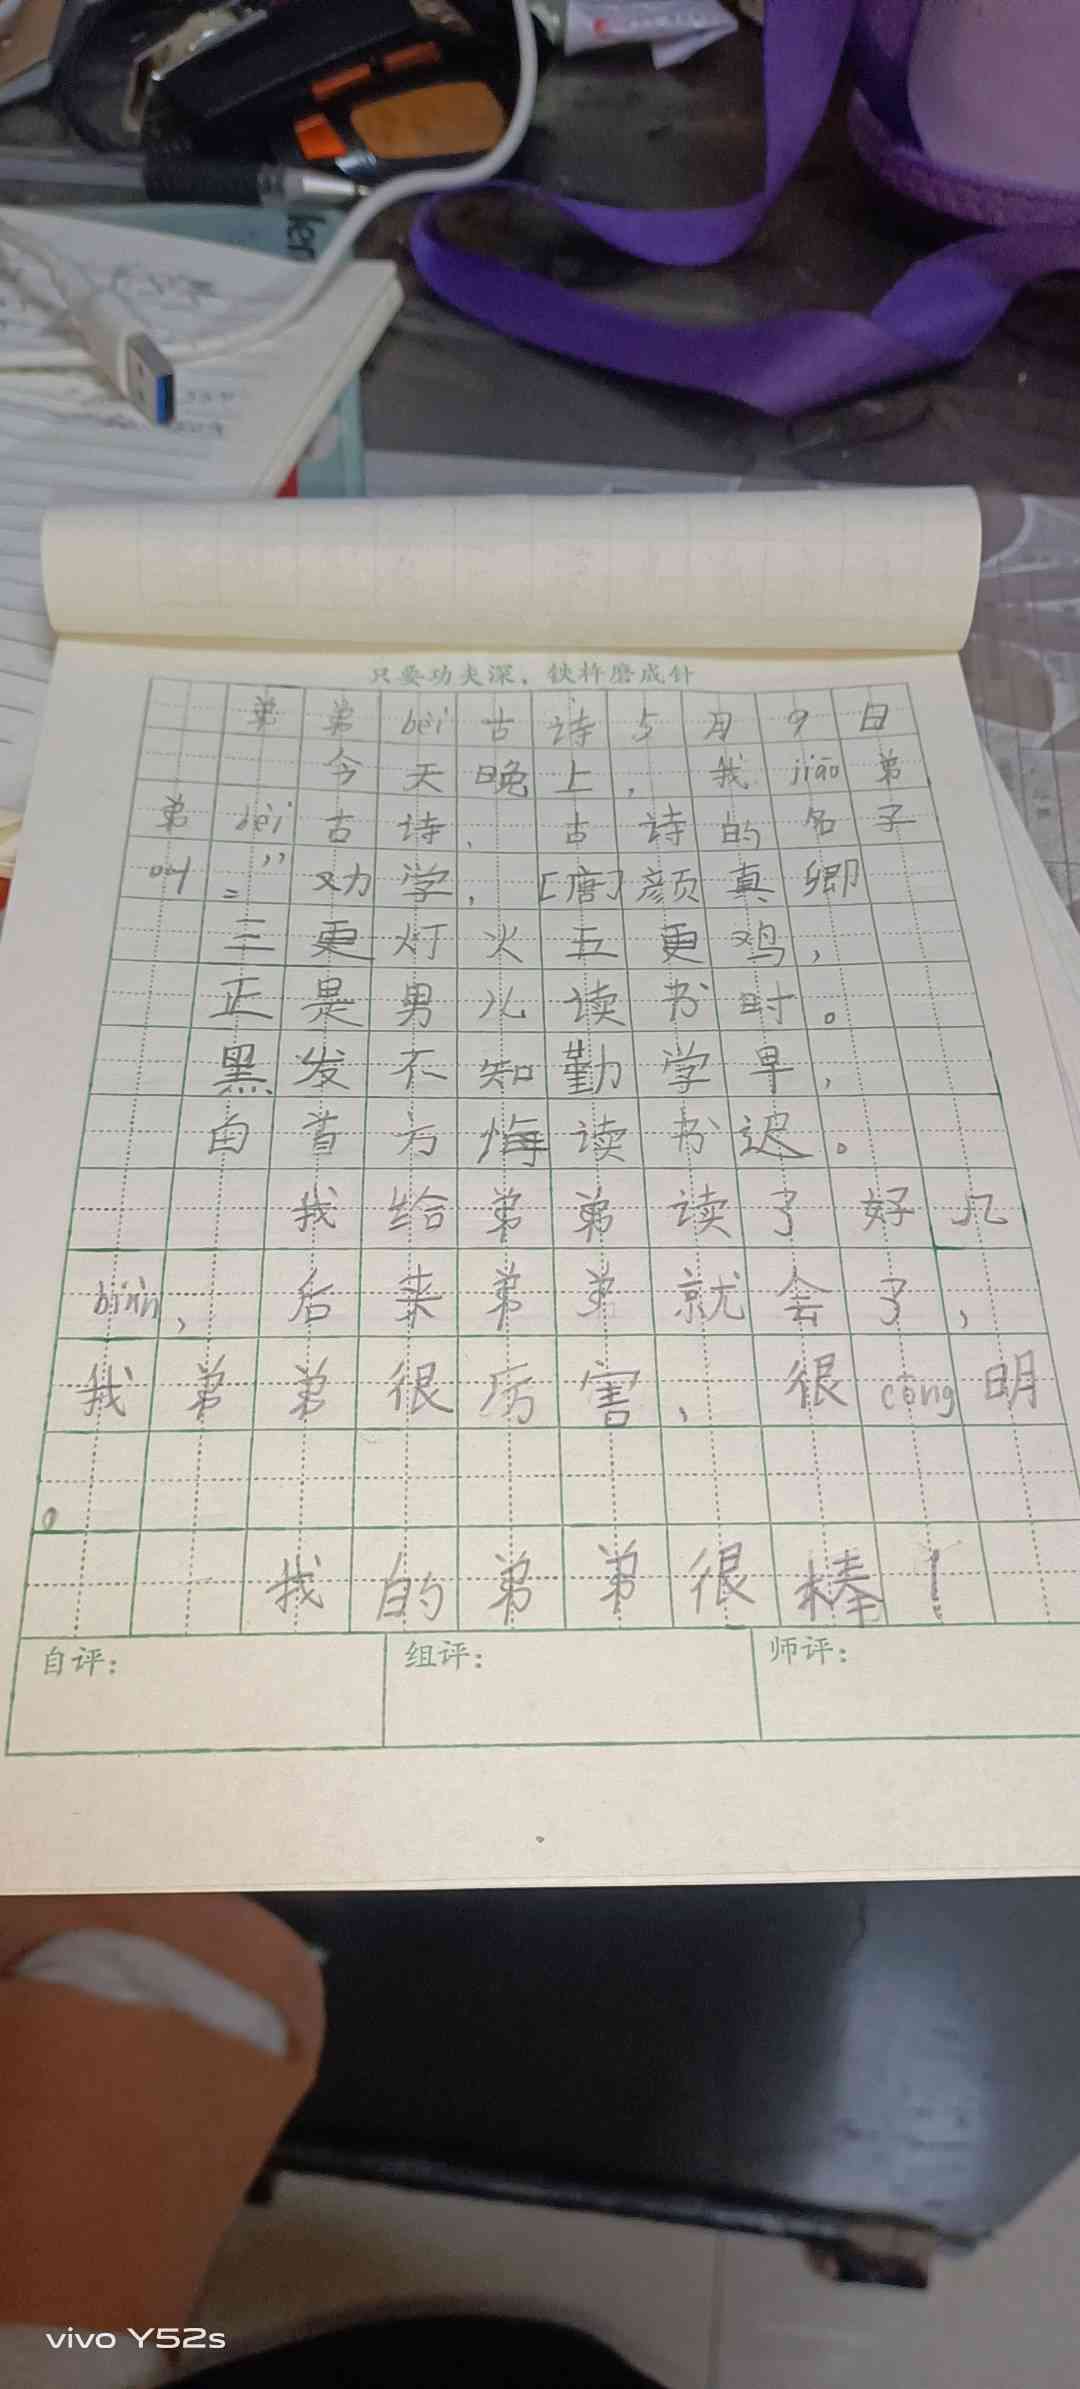 只要功夫深，铁杵磨成针
弟弟bèi古诗5月9日
今天晚上，我jiāo弟
弟bèi古诗，古诗的名子
叫：”劝学，[唐]颜真卿
三更灯火五更鸡，
正是男儿读书时。
黑发不知勤学早，
白首方悔读书迟。
我给弟弟读了好几
biàn，后来弟弟就会了，
我弟弟很厉害，很cōng明
。
我的弟弟很棒！
自评： 组评： 师评：
vivo Y52s